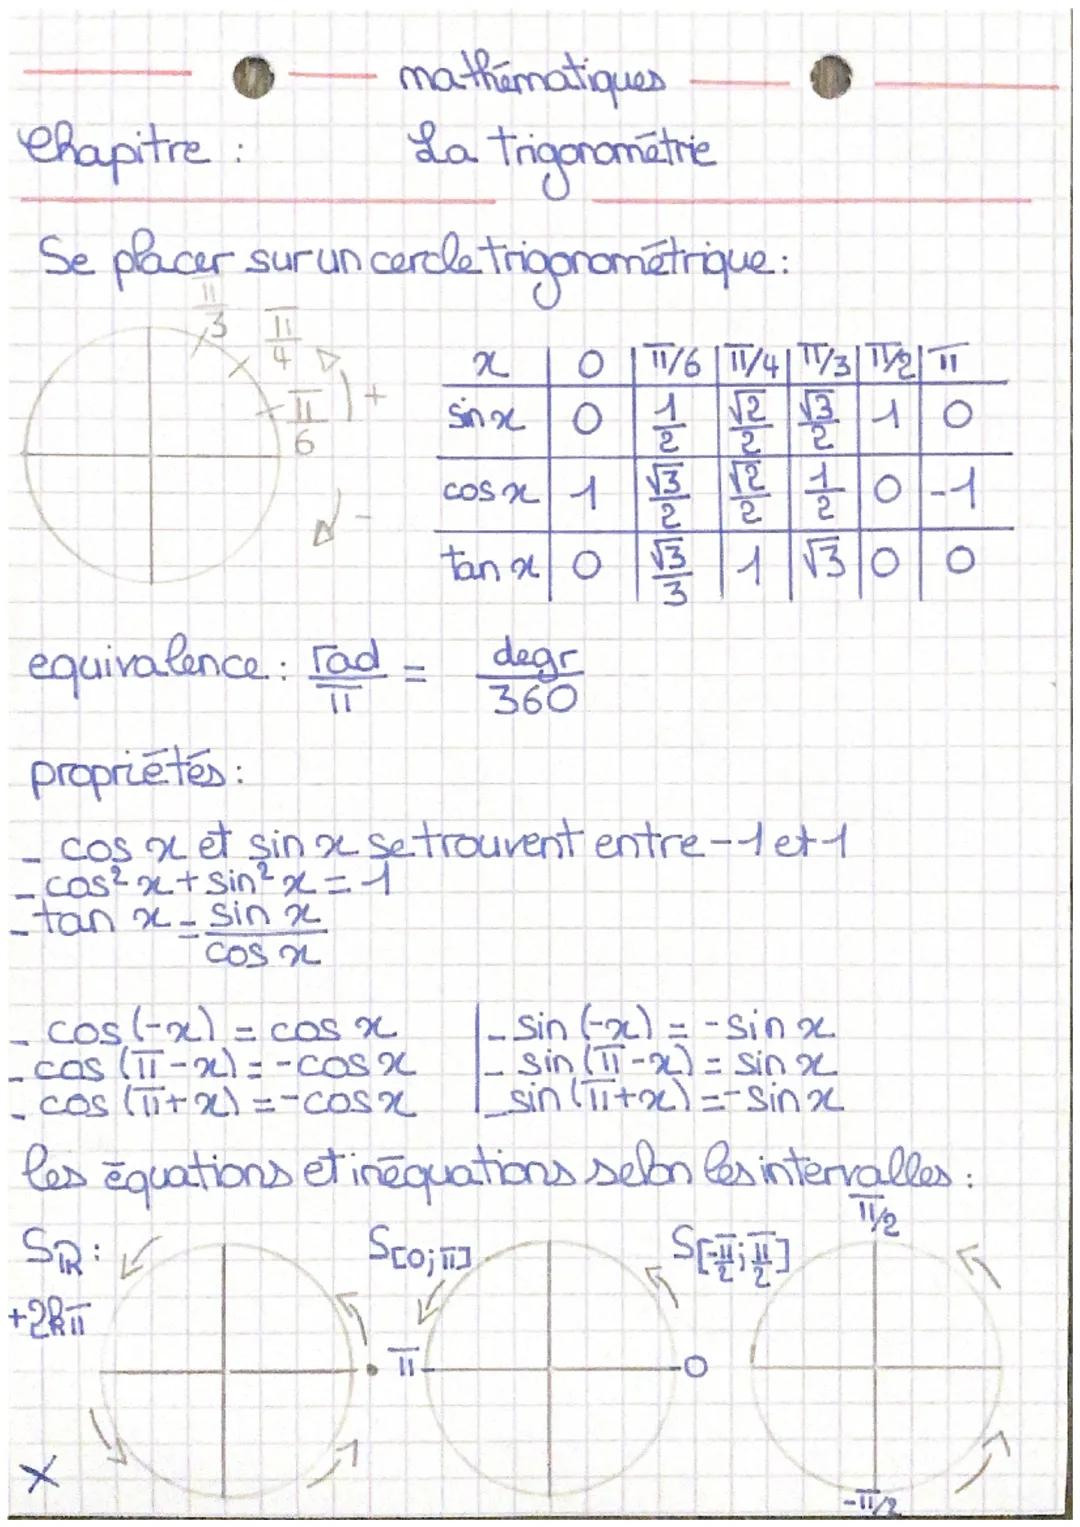 mathématiques
Chapitre : La trigonométrie
Se placer sur un cercle trigonométrique :
π/3
π/4
π/6
+
-
x | 0 | π/6 | π/4 | π/3 | π/2 | π
sin x | 0 | 1/2 | √2/2 | √3/2 | 1 | 0
cos x | 1 | √3/2 | √2/2 | 1/2 | 0 | -1
tan x | 0 | √3/3 | 1 | √3 | 0 | 0
equivalence : rad/π = degr/360
propriétés :
- cos x et sin x se trouvent entre -1 et 1
- cos² x + sin² x = 1
- tan x = sin x/cos x
- cos (-x) = cos x | - sin (-x) = -sin x
- cos (π-x) = -cos x | - sin (π-x) = sin x
- cos (π+x) = -cos x | - sin (π+x) = -sin x
les équations et inéquations selon les intervalles :
Sℝ : S[0;π] S[-π/2;π/2] π/2
+2kπ
π 0
-π/2